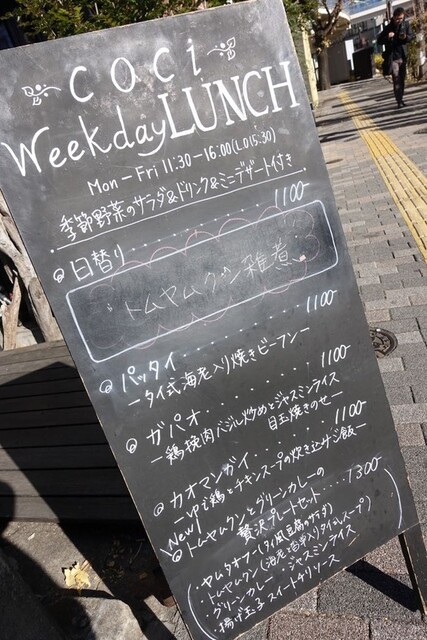 coci
Weekday LUNCH
Mon-Fri 11:30-16:00(LO15:30)
季節野菜のサラダ&ドリンク&ミニデザート付き
日替り......1100-
トムヤムクン雑煮
パッタイ......1100-
ータイ式海老入り焼きビーフンー
ガパオ......1100-
ー鶏挽肉バジル炒めとジャスミンライス
目玉焼きのせー
カオマンガイ......1100-
ーゆで鶏とチキンスープの炊き込みご飯ー
New!
トムヤムクンとグリーンカレーの
贅沢プレートセット...1300-
トムヤムクン(海老と香草入りタイスープ)
グリーンカレー・ジャスミンライス
揚げ玉子 スイートチリソース